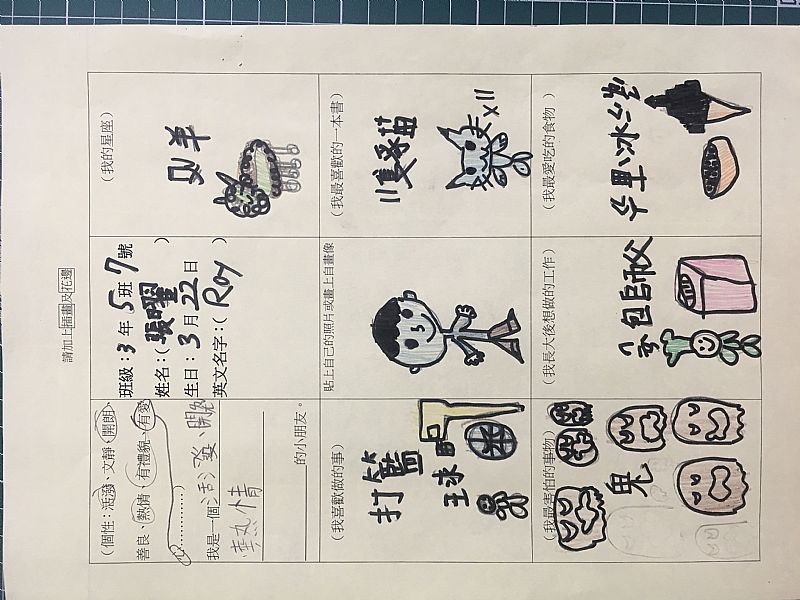 請加上插畫及花邊
（個性：活潑、文靜、開朗、
善良、熱情、有禮貌、有愛
我是一個活潑、開朗
熱情
的小朋友。
班級：3年5班7號
姓名：（ ）
生日：3月22日
英文名字：（Roy）
（我的星座）
羊
（我喜歡做的事）
打籃
球
貼上自己的照片或畫上自畫像
（我最喜歡的一本書）
11隻貓
x11
（我最害怕的事物）
鬼
（我長大後想做的工作）
包師父
（我最愛吃的食物）
冰